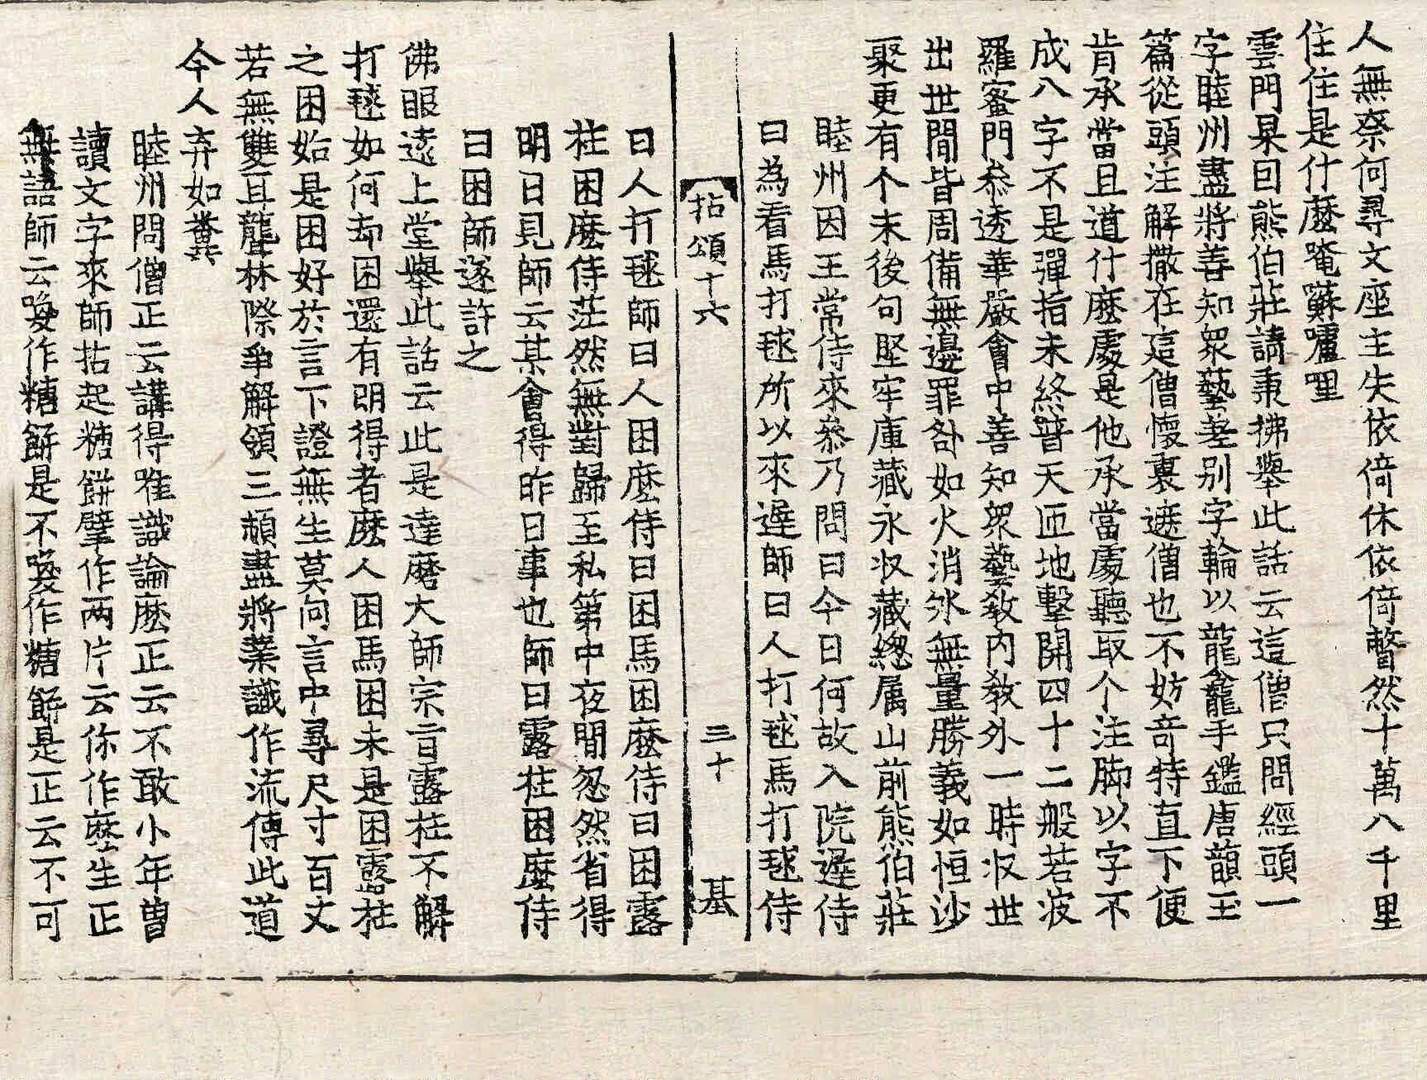 人無柰何尋文座主失依倚休依倚瞥然十萬八千里
住住是什麽唵蘇嚧哩
雲門杲回熊伯莊請秉拂舉此話云這僧只問經頭一
字睦州盡將善知衆藝差别字輪以龍龕手鑑唐韻玉
篇從頭注解撒在這僧懷裏遮僧也不妨竒特直下便
肯承當且道什麽處是他承當處聽取个注脚以字不
成八字不是彈指未終普天匝地擊開四十二般若波
羅蜜門叅透華嚴會中善知衆藝敎内敎外一時收世
出世間皆周備無邊罪咎如火消氷無量勝義如恒沙
聚更有个末後句堅牢庫藏永収藏總属山前熊伯莊
睦州因王常侍來叅乃問曰今日何故入院遲侍
曰為看馬打毬所以來遲師曰人打毬馬打毬侍
拈頌十六 三十 基
曰人打毬師曰人困麽侍曰困馬困麽侍曰困露
柱困麽侍茫然無對歸至私第中夜間忽然省得
明日見師云某會得昨日事也師曰露柱困麽侍
曰困師遂許之
佛眼遠上堂舉此話云此是達磨大師宗旨露柱不解
打毬如何却困還有明得者麽人困馬困未是困露柱
之困始是困好於言下證無生莫向言中尋尺寸百丈
若無雙耳聾林際爭解領三頓盡將業識作流傳此道
今人弃如糞
睦州問僧正云講得唯識論麽正云不敢小年曽
讀文字來師拈起糖餅擘作兩片云你作麽生正
無語師云喚作糖餅是不喚作糖餅是正云不可